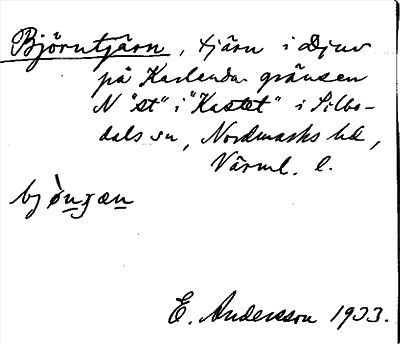 Björntjärn, tjärn i Djuv
på Karlanda gränsen
N "st" i "Kastet" i Silbo-
dals sn, Nordmarks hd,
Värml. l.
bjò̱nɟæn
E. Andersson 1933.